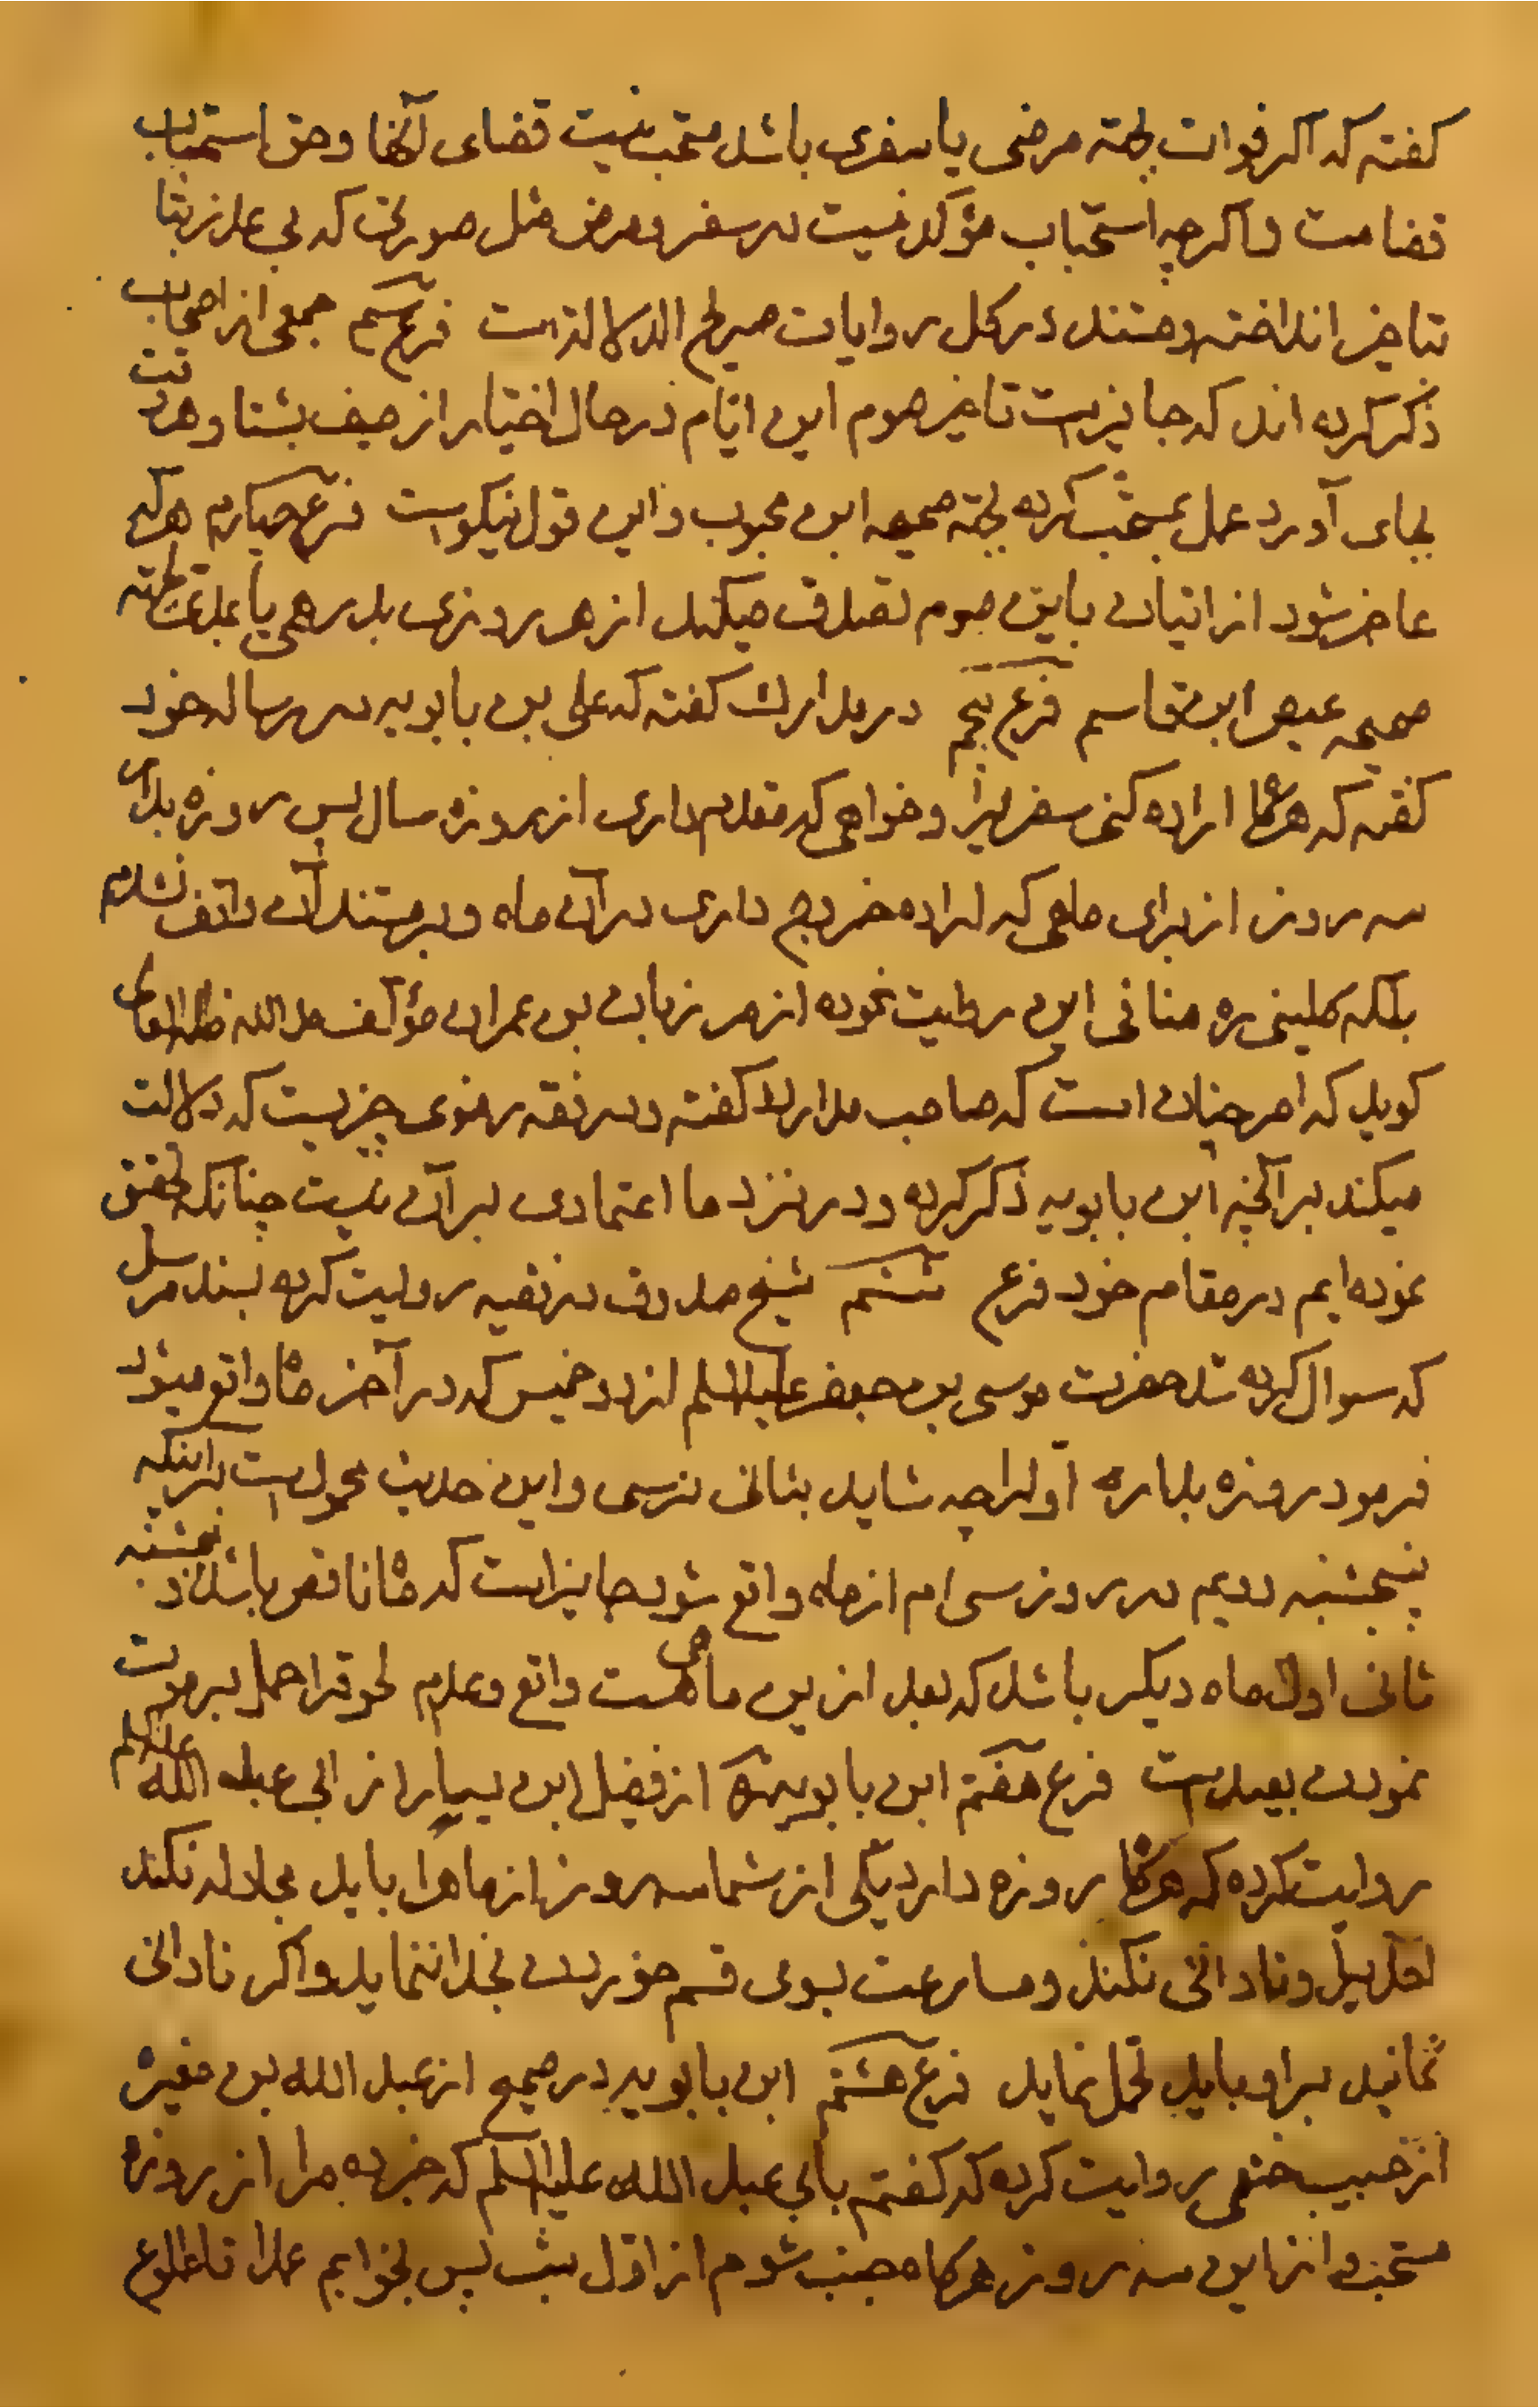 کفته که اکر فوات بجهته مرضی یا سفری باشد مستحب نیست قضای آنها و حق استحباب
قضا ست و اکرچه استحباب مؤکد نیست در سفر و مرض مثل صورتی که بی عذر بشتا
بتاخیر انداخته و مستند در کل روایات صریح الدلالة است فرع سیم جمعی از اصحاب
ذکر کرده اند که جایز است تاخیر صوم این ایام در حال اختیار از صیف بشتا و هر وقت
بجای آورد عمل بمستحب کرده بجهته صحیحه ابن محبوب و این قول نیکوست فرع چهارم هرکه
عاجز شود از اتیان باین صوم تصدق میکند از هر روزی بدرهمی یا بمدی بجهته
صحیحه عیص ابن قاسم فرع پنجم در مدارک کفته که علی بن بابویه در رساله خود
کفته که هرگاه اراده کنی سفر را و خواهی که مقدم داری از روزه سال پس روزه بدار
سه روز از برای ماهی که اراده خروج داری در آن ماه و بر مستند آن واقف نشدم
بلکه کلینی ره منافی این روایت نموده از مرزبان بن عمران مؤلف مد الله ظله العالی
کوید که امر چنان است که صاحب مدارک کفته و در فقه رضوی چیزیست که دلالت
میکند بر آنچه ابن بابویه ذکر کرده و در نزد ما اعتمادی بر آن نیست چنانکه تحقیق
نموده ایم در مقام خود فرع ششم شیخ صدوق در فقیه روایت کرده بسند مرسل
که سوال کرده شد حضرت موسی بن جعفر علیه السلم از دو خمیس که در آخر ماه واقع میشود
فرمود روزه بدار اول را چه شاید بثانی نرسی و این حدیث محمول است بر اینکه
پنجشنبه دویم در روز سی ام از ماه واقع شود جایز است که ماه ناقص باشد و پنجشنبه
ثانی اول ماه دیکر باشد که بعد ازین ماهی هست واقع و عدم لحوق را حمل بر موت
نمودن بعید است فرع هفتم ابن بابویه از فضیل ابن یسار از ابی عبد الله علیه السلم
روایت کرده که هرگاه روزه دارد یکی از شما سه روز از ماه را باید مجادله نکند
احدیرا و نادانی نکند و مسارعت بسوی قسم خوردن بخدا ننماید و اکر نادانی
نمایند بر او باید تحمل نماید فرع هشتم ابن بابویه در صحیح از عبد الله بن مغیره
از حبیب خثعمی روایت کرده که کفتم بابی عبد الله علیه السلم که خبر ده مرا از روزه
مستحب و از این سه روز هرکاه جنب شوم از اول شب پس بخوابم عمدا تا طلوع